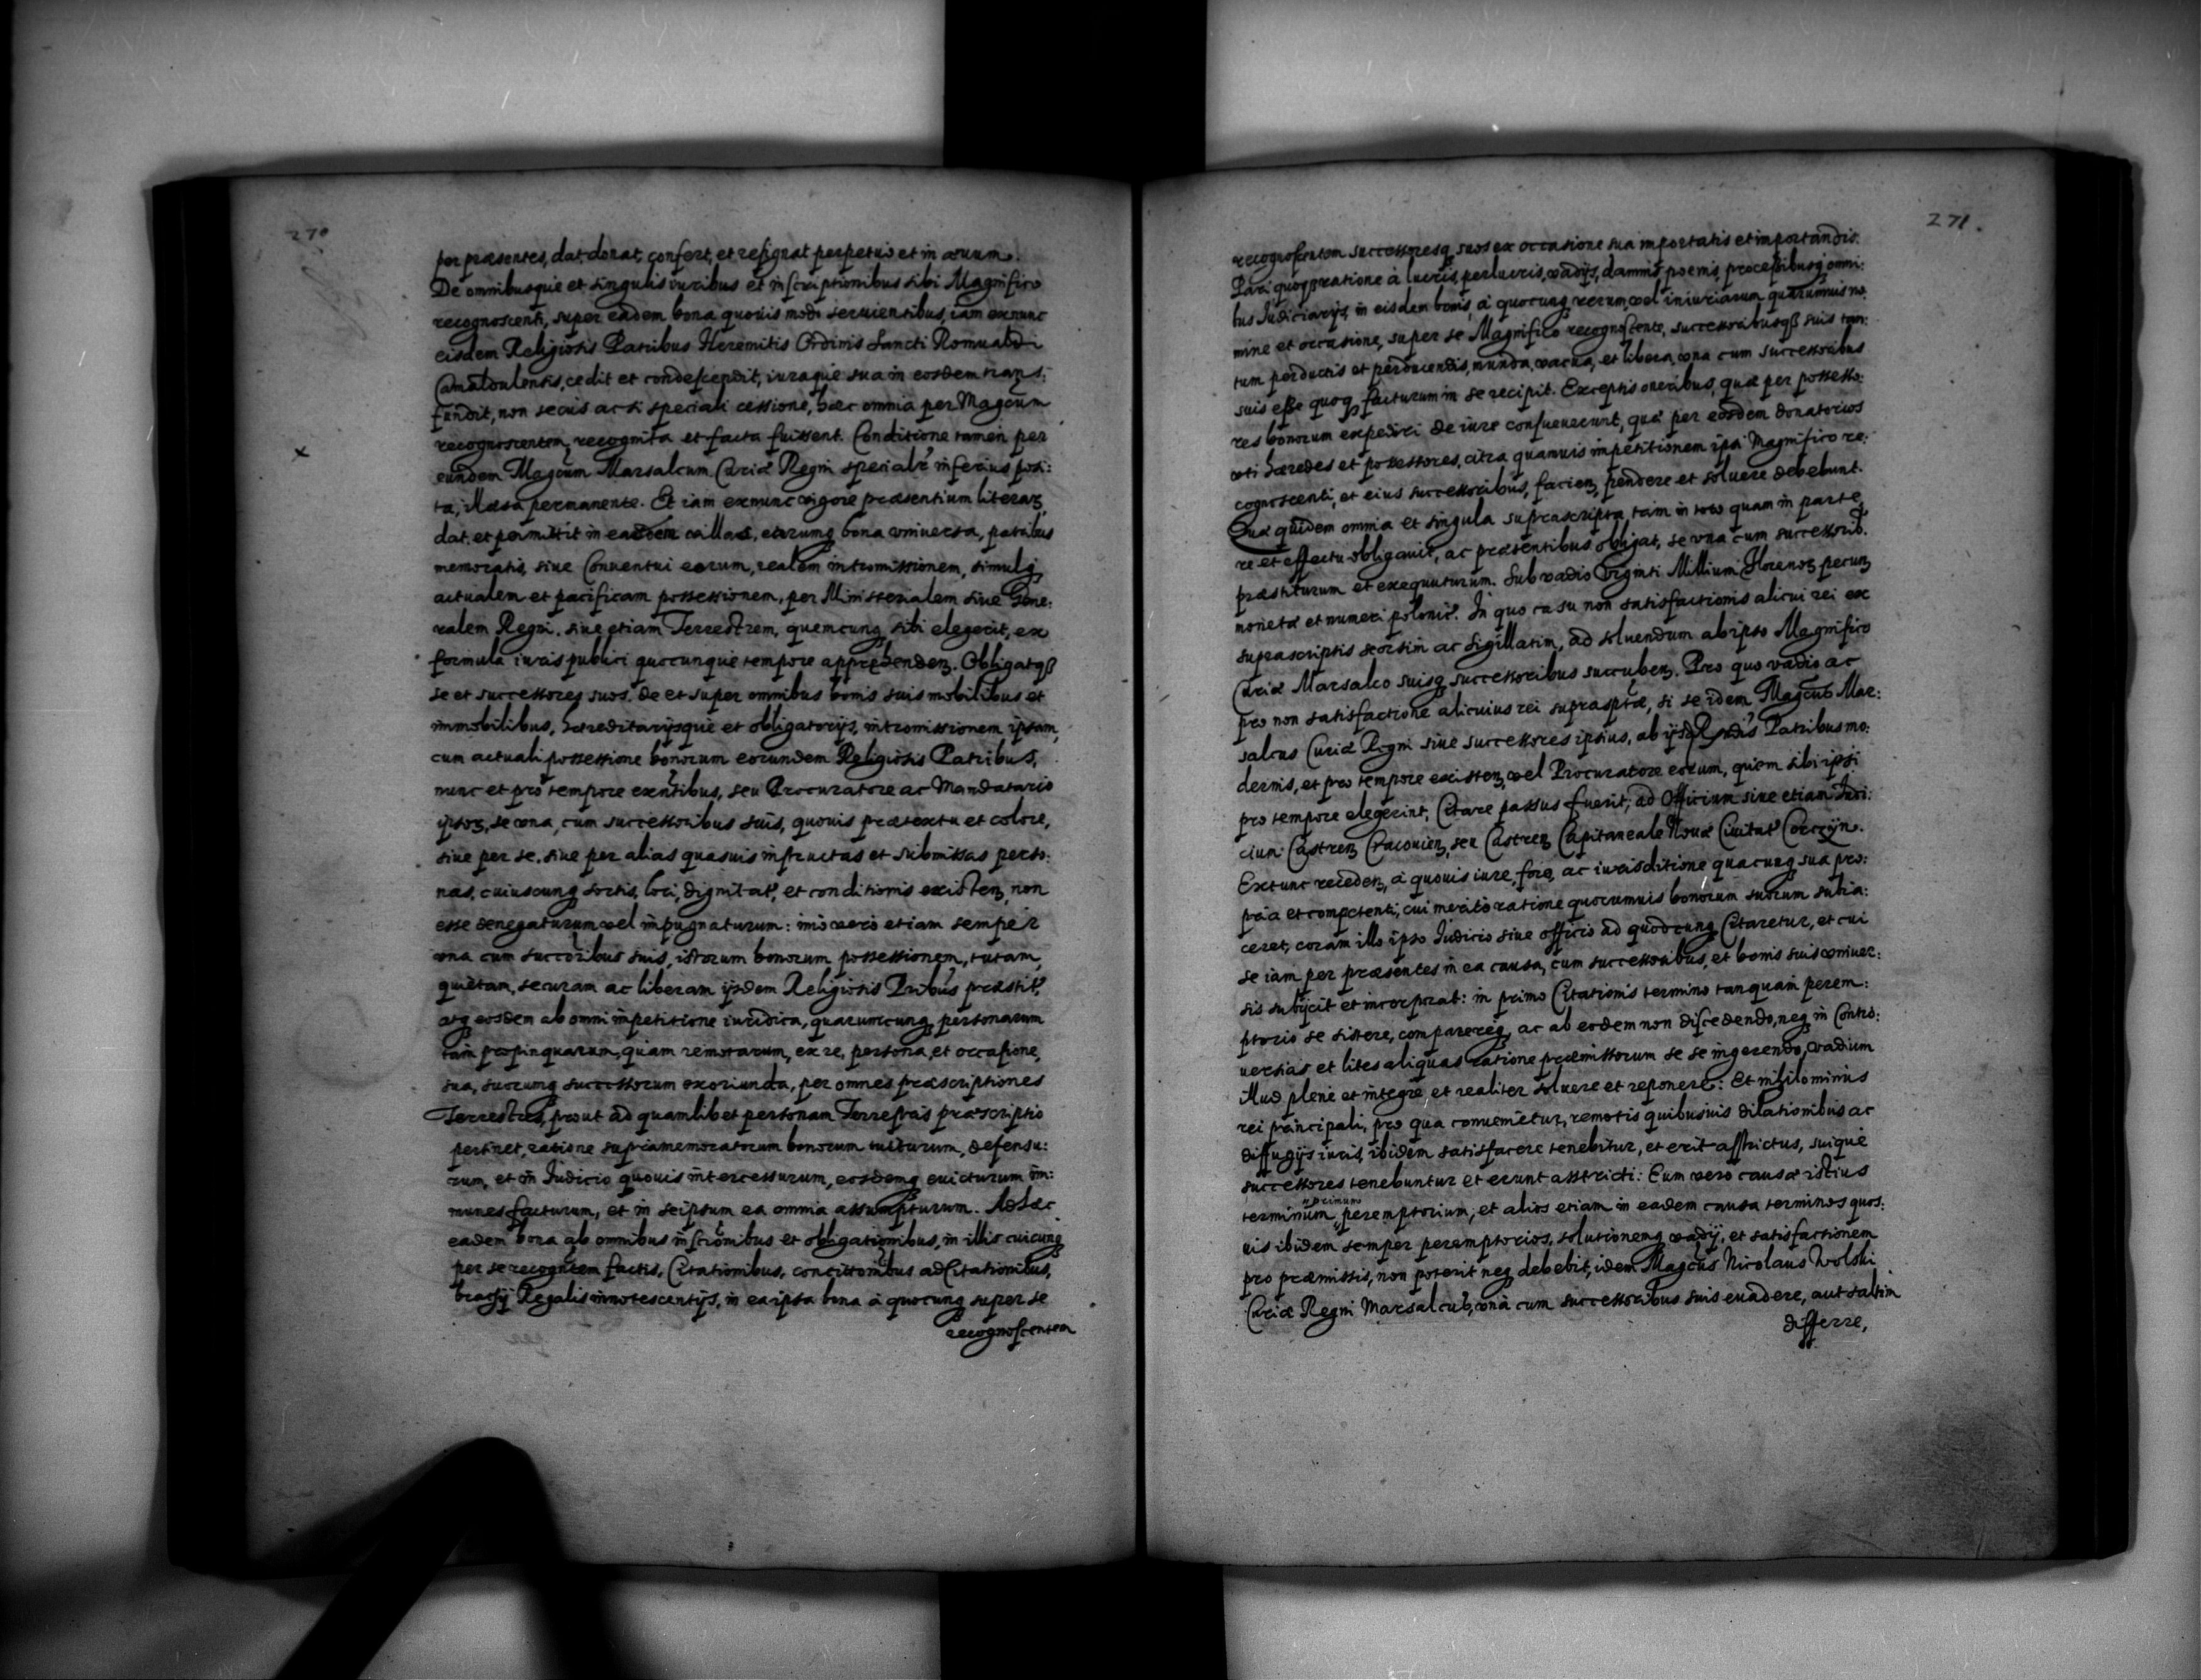 270
per præsentes, dat, donat, confert, et resignat perpetuis et in ævum.
De omnibusque et singulis iuribus et inscriptionibus sibi Magnifico
recognoscenti, super eadem bona quouis modo seruientibus, iam exnunc
eisdem Religiosis Patribus Heremitis Ordinis Sancti Romualdi
Camaldulensis, cedit et condescendit, iuraque sua in eosdem trans:
fundit, non secus ac si speciali cessione, hæc omnia per Magcum
recognoscentem, recognita et facta fuissent. Conditione tamen per
eundem Magcum Marsalcum Curiæ Regni specialr inferius posi:
ta, illæsa permanente. Et iam exnunc vigore præsentium literarz,
dat, et permittit in easdem villas, earumq bona vniuersa, patribus
memoratis, siue Conuentui eorum, realem intromissionem, simulq
actualem et pacificam possessionem, per Ministerialem siue Gene:
ralem Regni, siue etiam Terrestrem, quemcunq sibi elegerit, ex
formula iuris publici quocunque tempore apprehendenz. Obligatqß
se et successores suos, de et super omnibus bonis suis mobilibus et
immobilibus, hæreditarijsque et obligatorijs, intromissionem ipsam,
cum actuali possessione bonorum eorundem Religiosis Patribus,
nunc et pro tempore exentibus, seu Procuratore ac Mandatario
ipsorz, se vna, cum successoribus suis, quouis prætextu et colore,
siue per se, siue per alias quasuis instructas et submissas perso:
nas, cuiuscunq sortis, loci, dignitat, et conditionis existenz, non
esse denegaturum vel impugnaturum: imo vero etiam semper
vna cum succoribus suis, istorum bonorum possessionem, tutam,
quietam, securam ac liberam ijsdem Religiosis Pribus præstit,
atq eosdem ab omni impetitione iuridica, quarumcunq personarum
tam propinquarum, quam remotarum, ex re, persona, et occasione,
sua, suorumq successorum exoriunda, per omnes præscriptiones
Terrestres, prout ad quamlibet personam Terrestris præscriptio
pertinet, ratione supramemoratorum bonorum tuiturum, defensu:
rum, et in Iudicio quouis intercessurum, eosdemq euicturum im:
munes facturum, et in seipsum ea omnia assumpturum. Ad hæc
eadem bona ab omnibus inscronibus et obligationibus, in illis cuicunq
per se recogntem factis, Citationibus, concitationibus adCitationibus,
brachij Regalis innotescentijs, in ea ipsa bona à quocunq super se
recognoscentem
271.
recognoscentem successoresq suos ex occasione sua importatis et importandis.
Pari quoq ratione à lucris, perlucris, vadijs, damnis, poenis, processibusq omni:
bus Iudiciarijs, in eisdem bonis, à quocunq rerum, vel iniuriarum quarumuis no:
mine et occasione, super se Magnifico recognoscente, successoribusqß suis tan:
tum perductis et perducendis, munda, vacua, et libera, vna cum successoribus
suis esse quoq facturum in se recipit. Exceptis oneribus, quæ per possesso:
res bonorum expediri de iure consueuerunt, quæ per eosdem donatorios
vti hæredes et possessores, citra quamuis impetitionem ipsi Magnifico re:
cognoscenti, et eius successoribus, facienz, pendere et soluere debebunt.
Quæ quidem omnia et singula suprascripta, tam in toto quam in parte,
re et effectu obligauit, ac præsentibus obligat, se vna cum successorib.
præstiturum et exequuturum. Sub vadio Viginti Millium Florenorz pecunz
monetæ et numeri polonic. In quo casu non satisfactionis alicui rei ex
suprascriptis seorsim ac sigillatim, ad soluendum ab ipso Magnifico
Curiæ Marsalco suisq successoribus succubenz. Pro quo vadio ac
pro non satisfactione alicuius rei suprasptæ, si se idem Magcus Mar:
salcus Curiæ Regni siue successores ipsius, ab ijsd Rndis Patribus mo:
dernis, et pro tempore existenz, vel Procuratore eorum, quem sibi ipsi
pro tempore elegerint, Citare passus fuerit, ad Officium siue etiam Iudi:
cium Castrenz Cracouienz, seu Castrenz Capitaneale Nouæ Ciuitat Corczyn.
Extunc recedenz, à quouis iure, foro, ac iurisditione quacunq sua pro:
pria et competenti, cui merito ratione quorumuis bonorum suorum subia:
ceret, coram illo ipso Iudicio siue officio ad quodcunq Citaretur, et cui
se iam per præsentes in ea causa, cum successoribus, et bonis suis vniuer:
sis subijcit et incorporat: in primo Citationis termino tanquam perem:
ptorio se sistere, comparereq, ac ab eodem non discedendo, neq in Contro:
uersias et lites aliquas ratione præmissorum se se ingerendo, vadium
illud plene et integre, et realiter soluere et reponere: Et nihilominus
rei principali, pro qua conuenietur, remotis quibusuis dilationibus ac
diffugijs iuris, ibidem satisfacere tenebitur, et erit astrictus, suique
successores tenebuntur et erunt asstricti: Eum vero causæ istius
terminum primum peremptorium, et alios etiam in eadem causa terminos quos:
uis ibidem semper peremptorios, solutionemq vadij, et satisfactionem
pro præmissis, non poterit neq debebit, idem Magcus Nicolaus Wolski
Curiæ Regni Marsalcus, vnà cum successoribus suis euadere, aut saltim
differre,